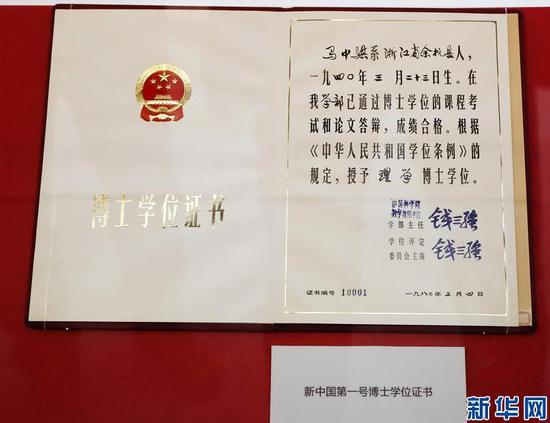 博士学位证书
马中骐系浙江省余杭县人，
一九四〇年三月二十三日生。在
我学部已通过博士学位的课程考
试和论文答辩，成绩合格。根据
《中华人民共和国学位条例》的
规定，授予理学博士学位。
中国科学院
数学物理学部
学部主任 钱三强
学位评定
委员会主席 钱三强
证书编号 10001
一九八二年三月四日
新中国第一号博士学位证书
新华网